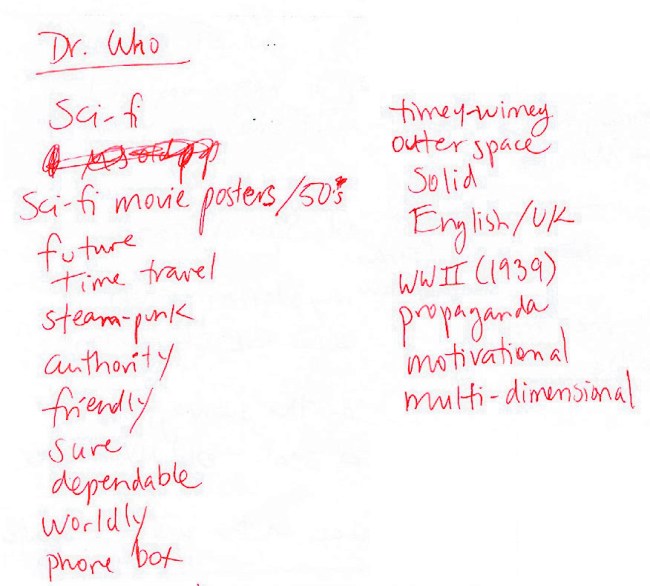 Dr. Who
Sci-fi
Sci-fi movie posters/50's
future
time travel
steam-punk
authority
friendly
sure
dependable
worldly
phone box
timey-wimey
outer space
Solid
English/UK
WWII (1939)
propaganda
motivational
multi-dimensional